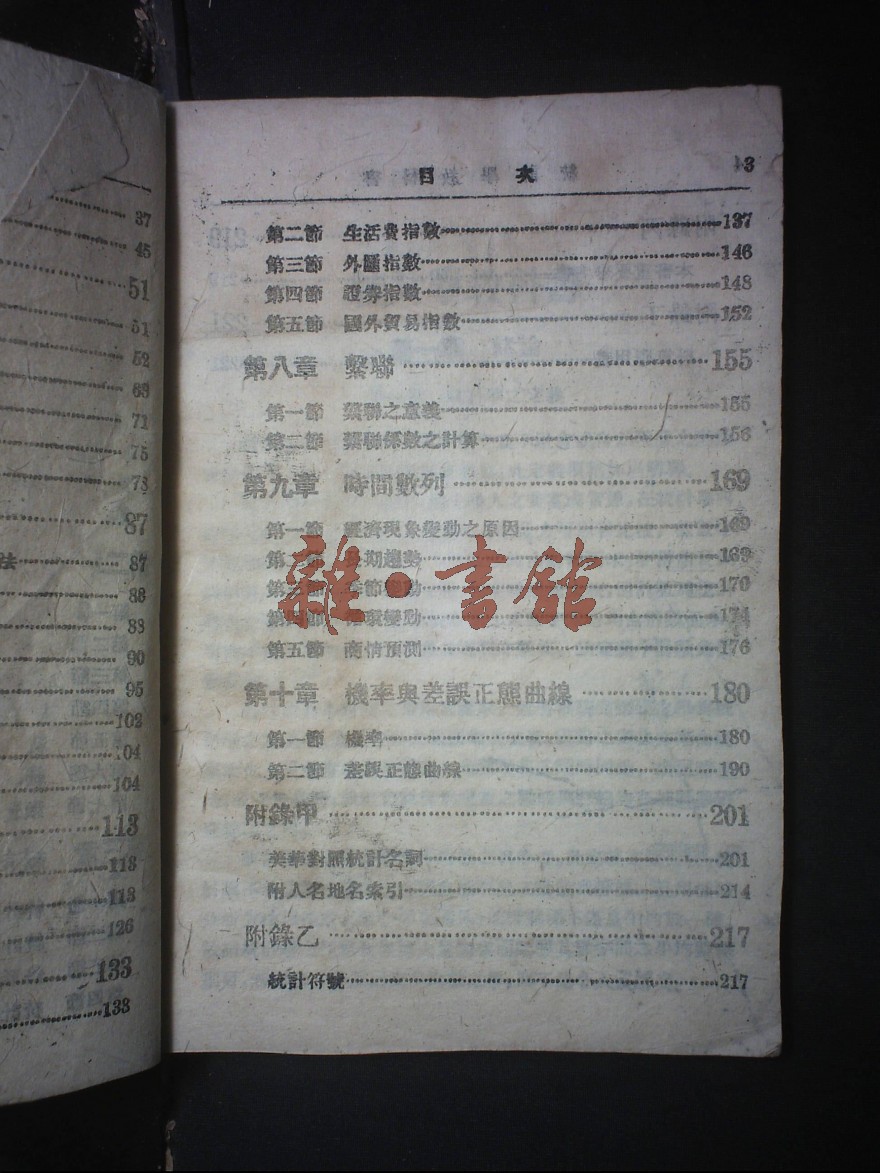 37
45
51
51
52
63
71
75
78
87
法 87
88
88
90
95
102
104
104
113
113
118
126
133
133
目 次 3
第二節 生活費指數 137
第三節 外匯指數 146
第四節 證券指數 148
第五節 國外貿易指數 152
第八章 繫聯 155
第一節 繫聯之意義 155
第二節 繫聯係數之計算 156
第九章 時間數列 169
第一節 經濟現象變動之原因 169
第二節 長期趨勢 169
第三節 季節變動 170
第四節 循環變動 174
第五節 商情預測 176
第十章 機率與差誤正態曲線 180
第一節 機率 180
第二節 差誤正態曲線 190
附錄甲 201
英華對照統計名詞 201
附人名地名索引 214
附錄乙 217
統計符號 217
雜·書館